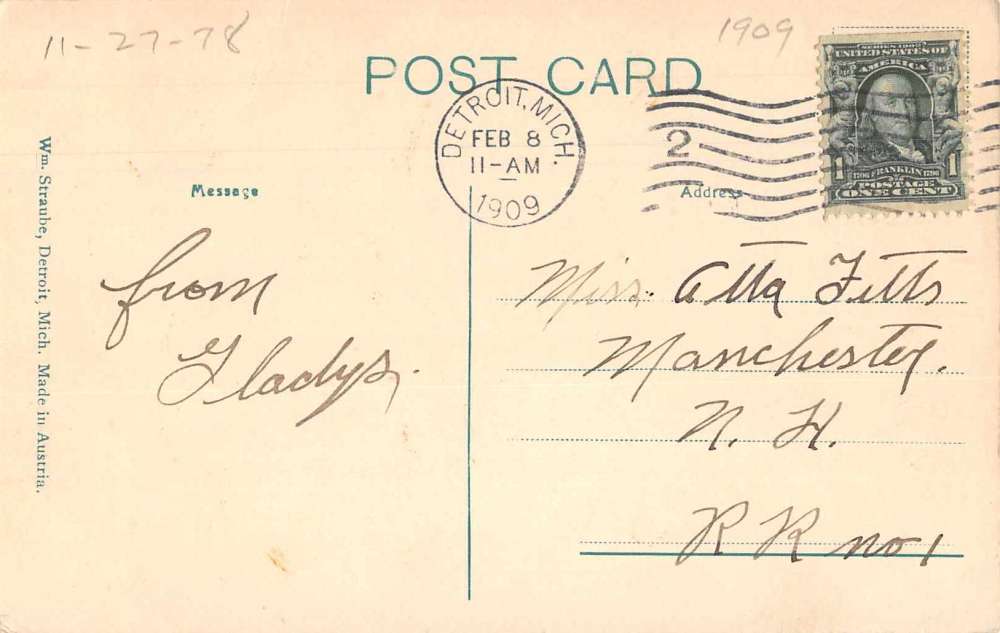 11-27-78
1909
POST CARD
DETROIT, MICH.
FEB 8
11-AM
1909
2
SERIES 1902
UNITED STATES OF
AMERICA
1 1
1706 FRANKLIN 1790
POSTAGE
ONE CENT
Message
Address
from
Gladys.
Miss. Atta Fitts
Manchester.
N. H.
R R no 1
Wm. Straube, Detroit, Mich. Made in Austria.